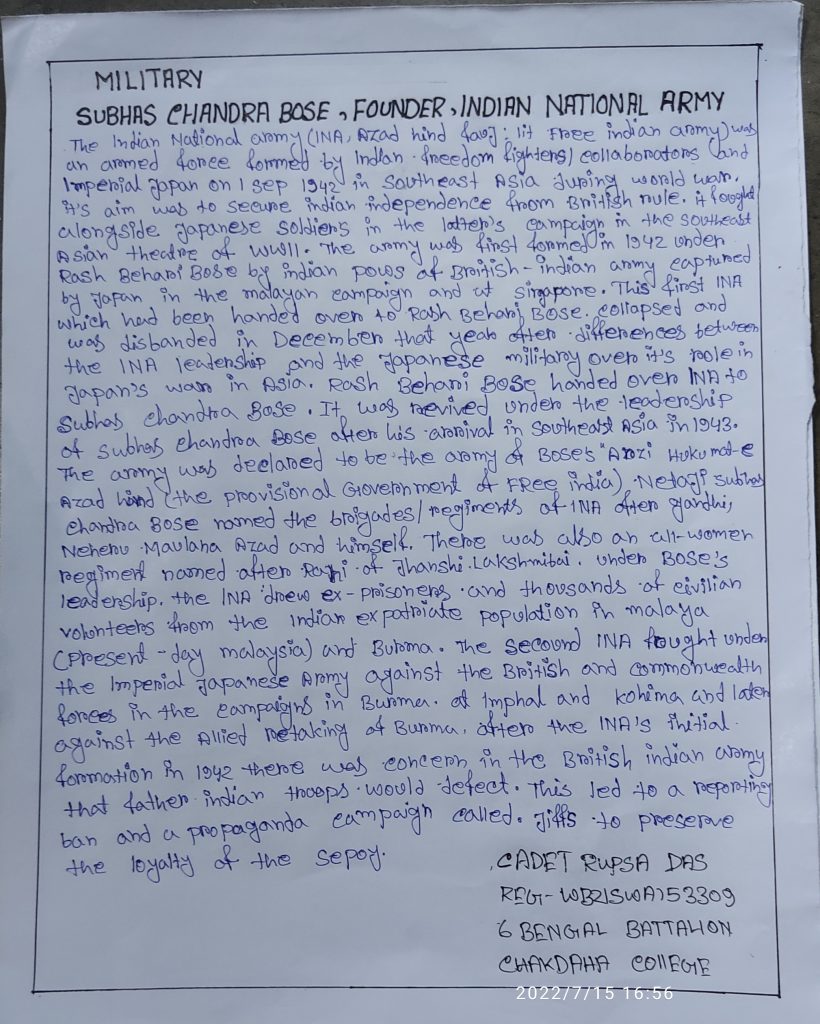 MILITARY
SUBHAS CHANDRA BOSE, FOUNDER, INDIAN NATIONAL ARMY
The Indian National army (INA, Azad hind fauj; lit Free indian army) was
an armed force formed by Indian freedom fighters/collaborators and
Imperial Japan on 1 sep 1942 in Southeast Asia During world war.
it's aim was to secure indian independence from British rule. it fought
alongside Japanese soldiers in the latter's campaign in the southeast
Asian theatre of WWII. The army was first formed in 1942 under
Rash Behari Bose by indian pows of British-indian army captured
by Japan in the malayan campaign and at singapore. This first INA
which had been handed over to Rash Behari Bose. collapsed and
was disbanded in December that year after differences between
the INA leadership and the Japanese military over it's role in
Japan's war in Asia. Rash Behari Bose handed over INA to
Subhas chandra Bose. It was revived under the leadership
of subhas chandra Bose after his arrival in Southeast Asia in 1943.
The army was declared to be the army of Bose's "Arzi Hukumat-e
Azad hind (the provisional Government of FRee india). Netaji subhas
Chandra Bose named the brigades/regiments of INA after gandhi,
Neheru Maulana Azad and himself. There was also an all-women
regiment named after Rani of Jhanshi. Lakshmibai. under Bose's
leadership. the INA drew ex-prisoners and thousands of civilian
volunteers from the Indian expatriate population in malaya
(present-day malaysia) and Burma. The second INA fought under
the Imperial Japanese Army against the British and commonwealth
forces in the campaigns in Burma. at Imphal and kohima and later
against the Allied retaking of Burma. after the INA's initial
formation in 1942 there was concern in the British indian army
that father indian troops would defect. This led to a reporting
ban and a propaganda campaign called. Jiffs to preserve
the loyalty of the sepoy.
CADET RUPSA DAS
REG- WB21SWA153309
6 BENGAL BATTALION
CHAKDAHA COllEGE
2022/7/15 16:56